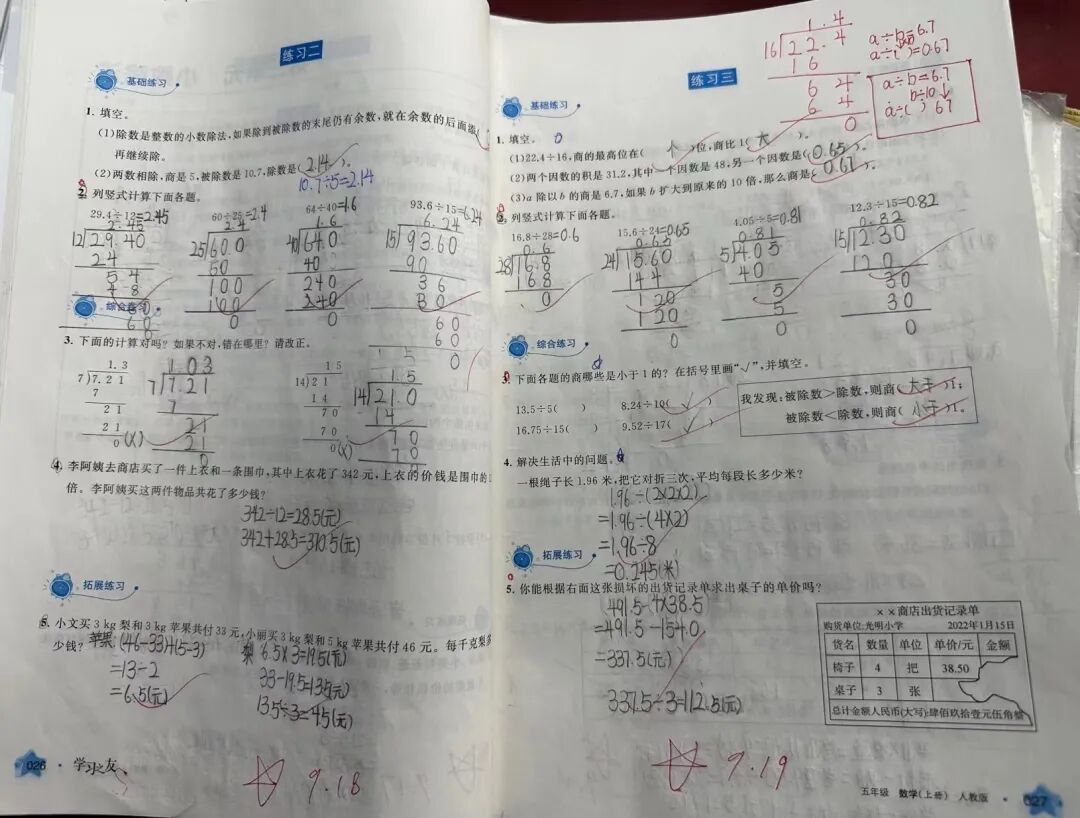 练习二
基础练习
1. 填空。
(1)除数是整数的小数除法,如果除到被除数的末尾仍有余数,就在余数的后面添
再继续除。
(2)两数相除,商是5,被除数是10.7,除数是( 2.14 )。
10.7÷5=2.14
2. 列竖式计算下面各题。
29.4÷12=2.45 60÷25=2.4 64÷40=1.6 93.6÷15=6.24
2.45 2.4 1.6 6.24
12 29.40 25 60.0 40 64.0 15 93.60
24 50 40 90
54 100 240 36
48 100 240 30
60 0 0 60
60 60
0 0
综合练习
3. 下面的计算对吗?如果不对,错在哪里?请改正。
1.3 1.03 15 1.5
7 7.21 7 7.21 14 21 14 21.0
7 7 14 14
21 21 70 70
21 21 70 70
0 (X) 0 0 (X) 0
4. 李阿姨去商店买了一件上衣和一条围巾,其中上衣花了342元,上衣的价钱是围巾的
倍。李阿姨买这两件物品共花了多少钱?
342÷12=28.5(元)
342+28.5=370.5(元)
拓展练习
5. 小文买3 kg梨和3 kg苹果共付33元,小丽买3 kg梨和5 kg苹果共付46元。每千克梨多
少钱?
苹果:(46-33)÷(5-3)
=13÷2
=6.5(元)
梨 6.5×3=19.5(元)
33-19.5=13.5(元)
13.5÷3=4.5(元)
026 · 学习之友
9.18
练习三
1.4
16 22.4
16
64
64
0
a÷b=6.7
a÷( )=0.67
a÷b=6.7
b÷10↓
a÷( ) 67
基础练习
1. 填空。
(1)22.4÷16,商的最高位在( 个 )位,商比1( 大 )。
(2)两个因数的积是31.2,其中一个因数是48,另一个因数是( 0.65 )。
(3)a除以b的商是6.7,如果b扩大到原来的10倍,那么商是( 0.67 )。
2. 列竖式计算下面各题。
16.8÷28=0.6 15.6÷24=0.65 4.05÷5=0.81 12.3÷15=0.82
0.6 0.65 0.81 0.82
28 16.8 24 15.60 5 4.05 15 12.30
168 144 40 120
0 120 5 30
120 5 30
0 0 0
综合练习
3. 下面各题的商哪些是小于1的?在括号里画“√”,并填空。
13.5÷5( ) 8.24÷10( √ )
16.75÷15( ) 9.52÷17( √ )
我发现:被除数>除数,则商( 大于 )1;
被除数<除数,则商( 小于 )1。
4. 解决生活中的问题。
一根绳子长1.96米,把它对折三次,平均每段长多少米?
1.96÷(2×2×2)
=1.96÷(4×2)
=1.96÷8
=0.245(米)
拓展练习
5. 你能根据右面这张损坏的出货记录单求出桌子的单价吗?
491.5-(4×38.5)
=491.5-154.0
=337.5(元)
337.5÷3=112.5(元)
××商店出货记录单
购货单位:光明小学 2022年1月15日
货名 数量 单位 单价/元 金额
椅子 4 把 38.50
桌子 3 张
总计金额人民币(大写):肆佰玖拾壹元伍角整
9.19
五年级 数学(上册) 人教版 · 027